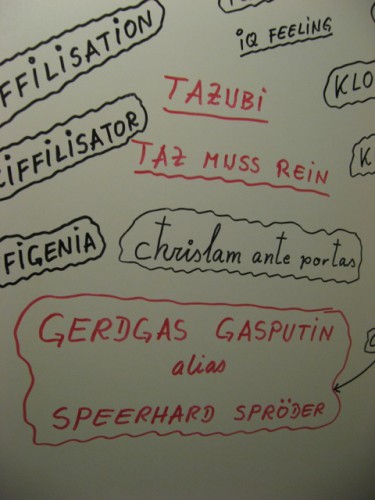 FFILISATION
iQ FEELING
TAZUBi
KLO
IFFILISATOR
TAZ MUSS REIN
K
FIGENIA
Chrislam ante portas
GERDGAS GASPUTIN
alias
SPEERHARD SPRÖDER